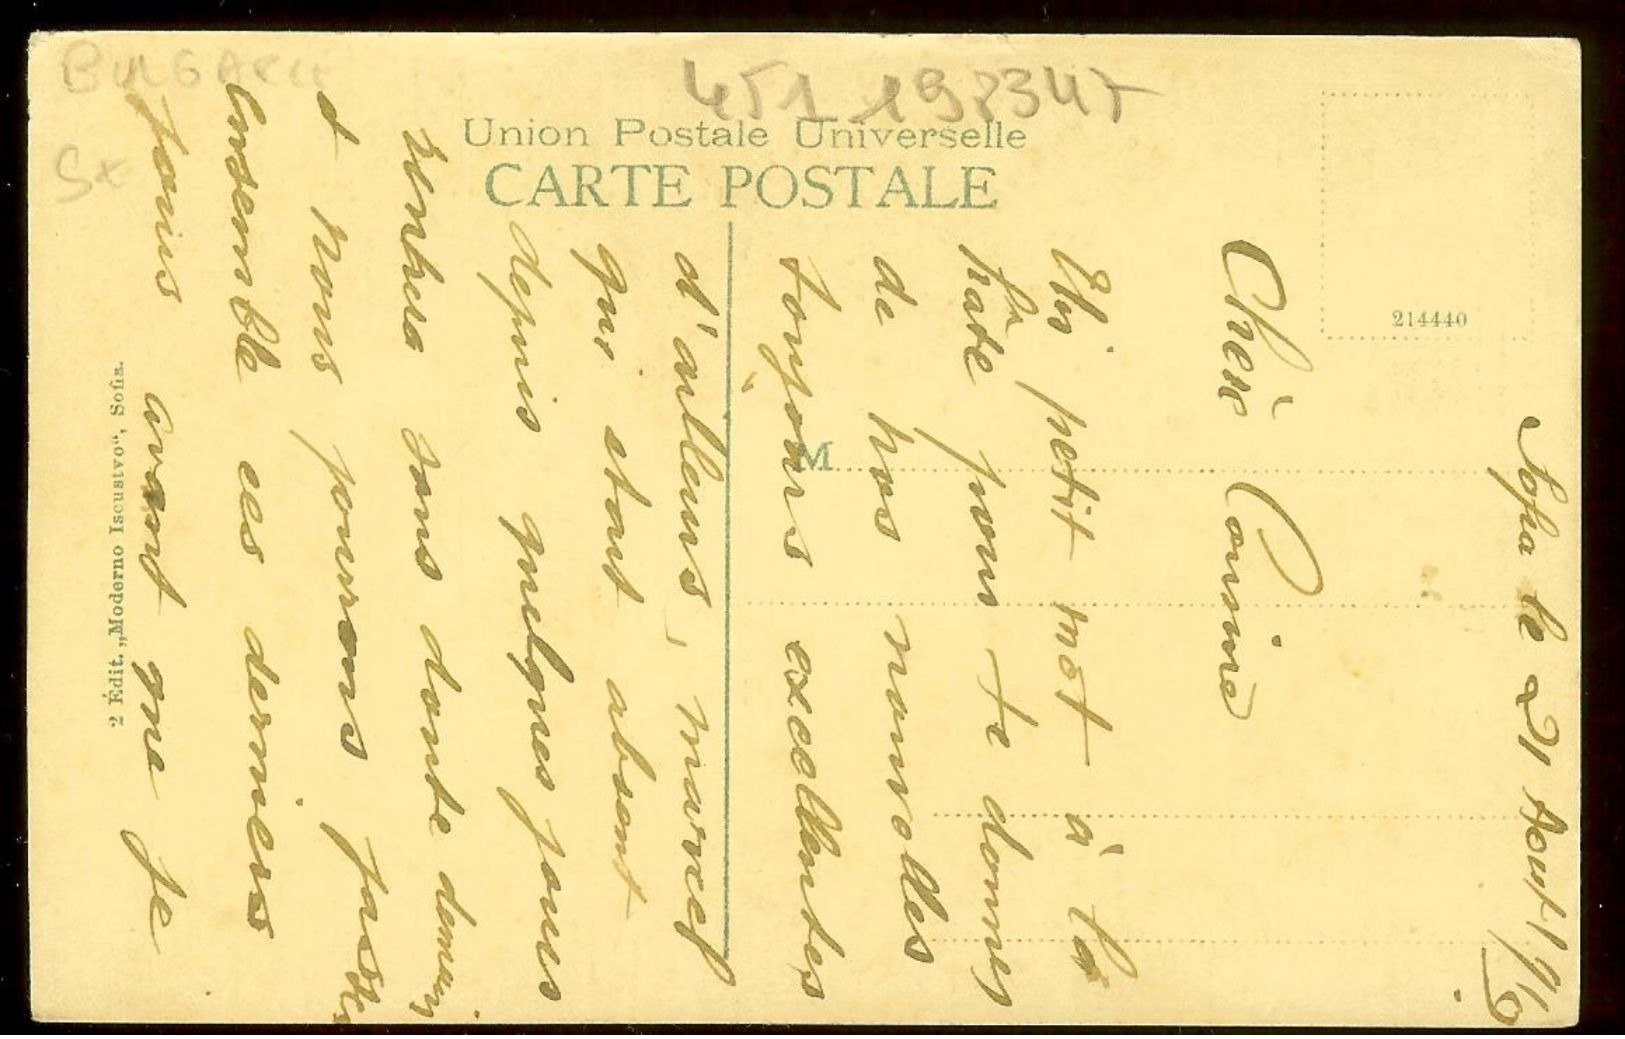 BULGARIE
Sx
451 198347
Union Postale Universelle
CARTE POSTALE
214440
M
2 Édit. „Moderno Iscustvo“, Sofia.
Sofia le 21 Aout
Chère Cousine
Un petit mot à la
hate pour te donner
de nos nouvelles
toujours excellentes
d'ailleurs, Marcel
qui etait absent
depuis quelques jours
rentrera sans doute demain
et nous pourrons passer
ensemble ces derniers
jours avant que je